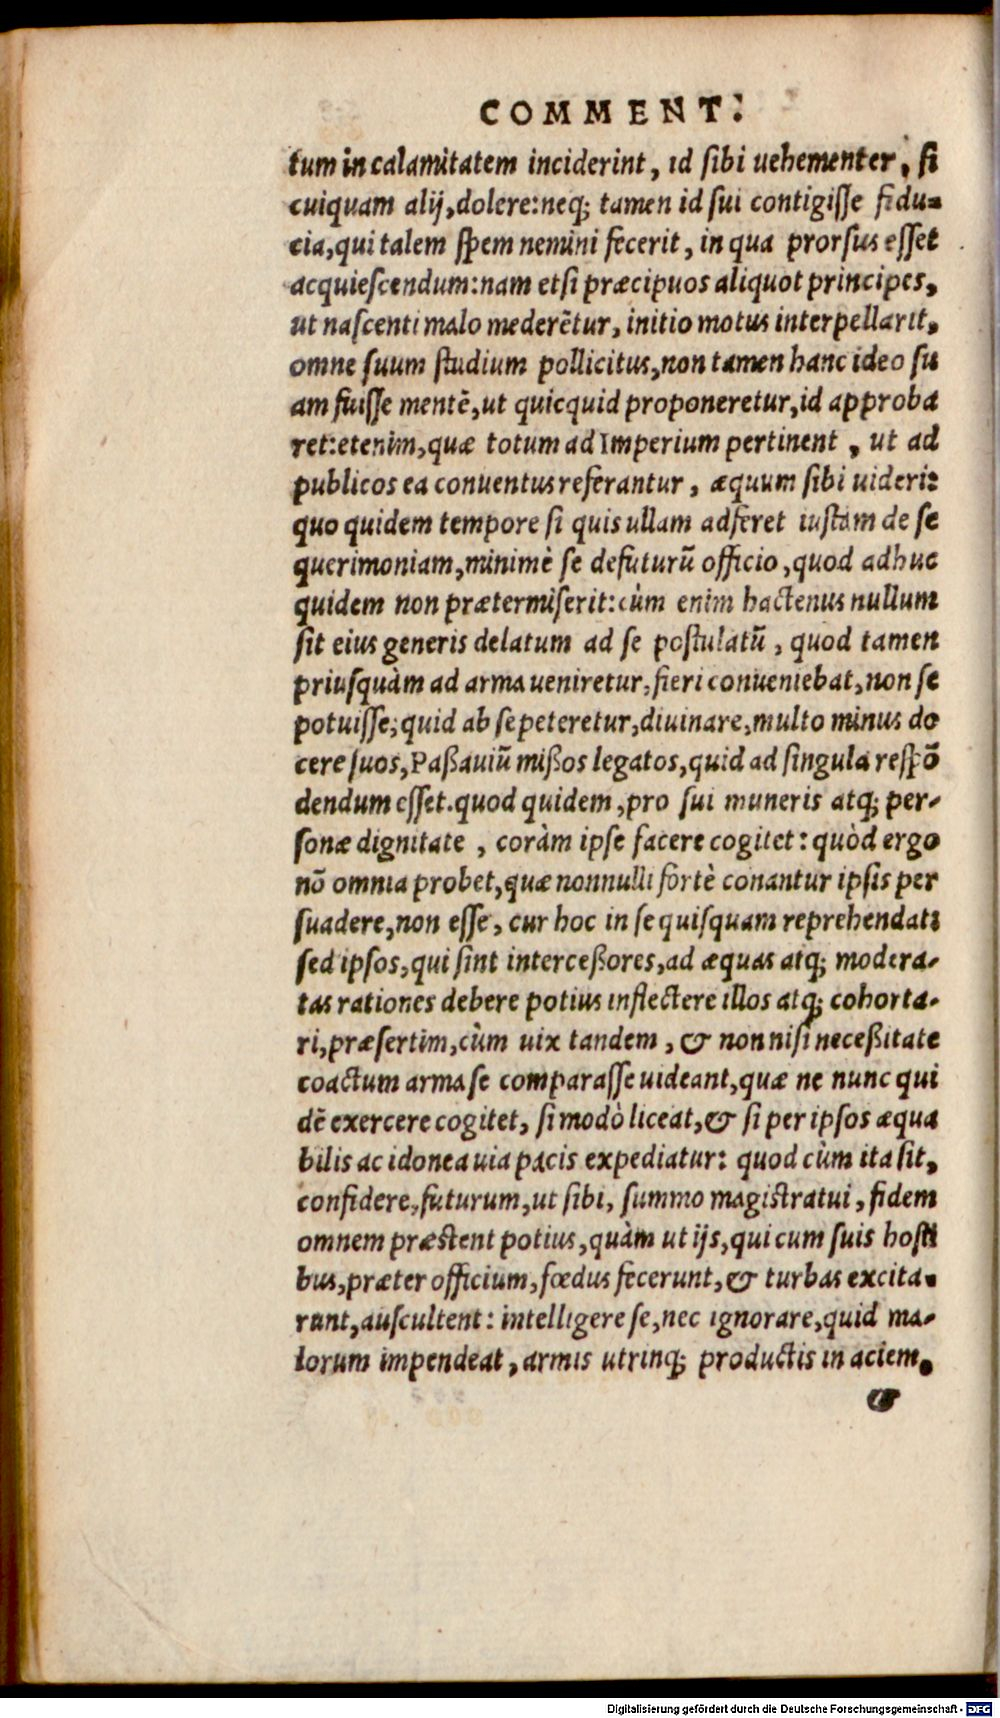 COMMENT.
tum in calamitatem inciderint, id sibi uehementer, si
cuiquam alij, dolere: neq; tamen id sui contigisse fidu-
cia, qui talem spem nemini fecerit, in qua prorsus esset
acquiescendum: nam etsi præcipuos aliquot principes,
ut nascenti malo mederētur, initio motus interpellarit,
omne suum studium pollicitus, non tamen hanc ideo su
am fuisse mentē, ut quicquid proponeretur, id approba
ret: etenim, quæ totum ad Imperium pertinent, ut ad
publicos ea conuentus referantur, æquum sibi uideri:
quo quidem tempore si quis ullam adferet iustam de se
querimoniam, minimè se defuturū officio, quod adhuc
quidem non prætermiserit: cùm enim hactenus nullum
sit eius generis delatum ad se postulatū, quod tamen
priusquàm ad arma ueniretur, fieri conueniebat, non se
potuisse, quid ab se peteretur, diuinare, multo minus do
cere suos, Paßauiū mißos legatos, quid ad singula respō
dendum esset. quod quidem, pro sui muneris atq; per-
sonæ dignitate, coràm ipse facere cogitet: quòd ergo
nō omnia probet, quæ nonnulli fortè conantur ipsis per
suadere, non esse, cur hoc in se quisquam reprehendat:
sed ipsos, qui sint interceßores, ad æquas atq; modera-
tas rationes debere potius inflectere illos atq; cohorta-
ri, præsertim, cùm uix tandem, & non nisi neceßitate
coactum arma se comparasse uideant, quæ ne nunc qui
dē exercere cogitet, si modò liceat, & si per ipsos æqua
bilis ac idonea uia pacis expediatur: quod cùm ita sit,
confidere, futurum, ut sibi, summo magistratui, fidem
omnem præstent potius, quàm ut ijs, qui cum suis hosti
bus, præter officium, fœdus fecerunt, & turbas excita-
runt, auscultent: intelligere se, nec ignorare, quid ma-
lorum impendeat, armis utrinq; productis in aciem.
&
Digitalisierung gefördert durch die Deutsche Forschungsgemeinschaft - DFG